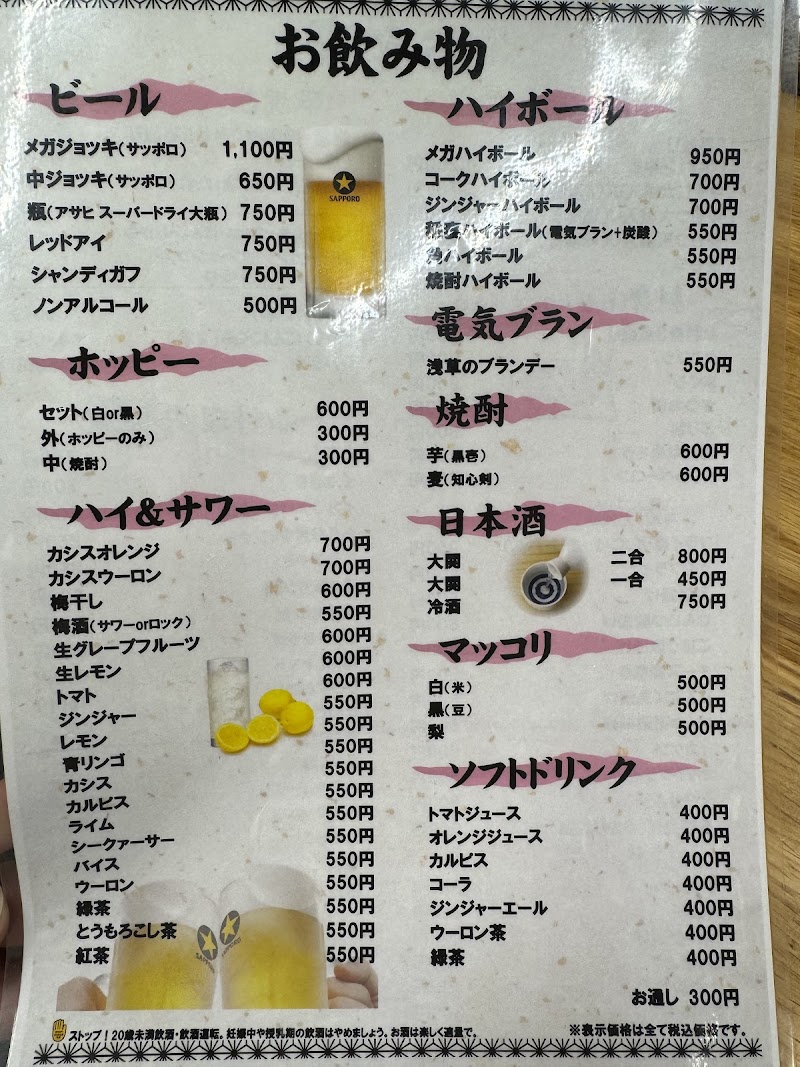 お飲み物
ビール
メガジョッキ(サッポロ) 1,100円
中ジョッキ(サッポロ) 650円
瓶(アサヒ スーパードライ大瓶) 750円
レッドアイ 750円
シャンディガフ 750円
ノンアルコール 500円
SAPPORO
ホッピー
セット(白or黒) 600円
外(ホッピーのみ) 300円
中(焼酎) 300円
ハイ&サワー
カシスオレンジ 700円
カシスウーロン 700円
梅干し 600円
梅酒(サワーorロック) 550円
生グレープフルーツ 600円
生レモン 600円
トマト 600円
ジンジャー 550円
レモン 550円
青リンゴ 550円
カシス 550円
カルピス 550円
ライム 550円
シークァーサー 550円
バイス 550円
ウーロン 550円
緑茶 550円
とうもろこし茶 550円
紅茶 550円
SAPPORO
SAPPORO
ハイボール
メガハイボール 950円
コークハイボール 700円
ジンジャーハイボール 700円
ハイボール(電気ブラン+炭酸) 550円
角ハイボール 550円
焼酎ハイボール 550円
電気ブラン
浅草のブランデー 550円
焼酎
芋(黒壱) 600円
麦(知心剣) 600円
日本酒
大関 二合 800円
大関 一合 450円
冷酒 750円
マッコリ
白(米) 500円
黒(豆) 500円
梨 500円
ソフトドリンク
トマトジュース 400円
オレンジジュース 400円
カルピス 400円
コーラ 400円
ジンジャーエール 400円
ウーロン茶 400円
緑茶 400円
お通し 300円
ストップ!20歳未満飲酒・飲酒運転。妊娠中や授乳期の飲酒はやめましょう。お酒は楽しく適量で。
※表示価格は全て税込価格です。